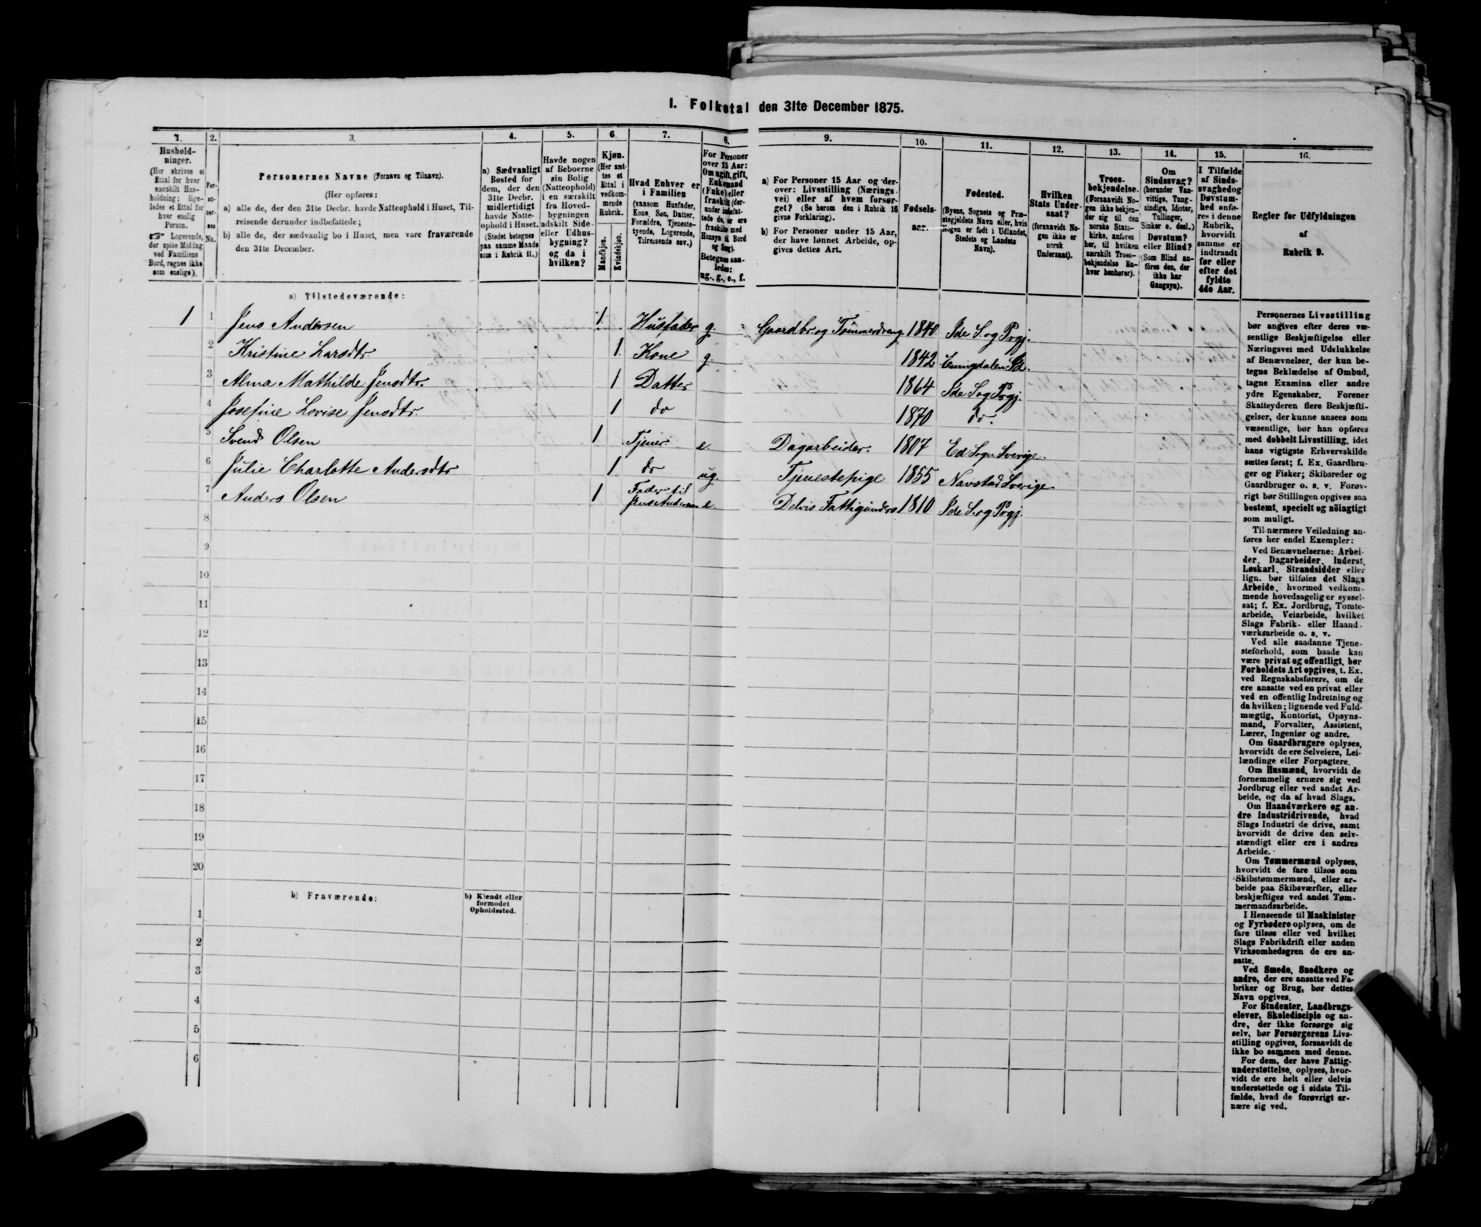 I. Folketal den 31te December 1875.
1. 2. 3. 4. 5. 6. 7. 8. 9. 10. 11. 12. 13. 14. 15. 16.
Husholdninger.
(Her skrives et Ettal for hver særskilt Husholdning; ligeledes et Ettal for hver enslig Person.
☞ Logerende, der spise Middag ved Familiens Bord, regnes ikke som enslige).
Personernes No.
Personernes Navne (Fornavn og Tilnavn).
(Her opføres:
a) alle de, der den 31te Decbr. havde Natteophold i Huset, Tilreisende derunder indbefattede;
b) alle de, der sædvanlig bo i Huset, men vare fraværende den 31te December.
a) Sædvanligt Bosted for dem, der den 31te Decbr. midlertidigt havde Natteophold i Huset.
(Stedet betegnes paa samme Maade som i Rubrik 11.)
Havde nogen af Beboerne sin Bolig (Natteophold) i en særskilt fra Hovedbygningen adskilt Side- eller Udhusbygning? og da i hvilken?
Kjøn.
(Her sættes et Ettal i vedkommende Rubrik.
Mandkjøn.
Kvindekjøn.
Hvad Enhver er i Familien
(saasom Husfader, Kone, Søn, Datter, Forældre, Tjenestetyende, Logerende, Tilreisende osv.)
For Personer over 15 Aar: Om ugift, gift, Enkemand (Enke) eller fraskilt
Betegnes saaledes: ug., g., e., f.
a) For Personer 15 Aar og derover: Livsstilling (Næringsvei) eller af hvem forsørget? (Se herom den i Rubrik 16 givne Forklaring).
b) For Personer under 15 Aar, der have lønnet Arbeide, opgives dettes Art.
Fødselsaar.
Fødested.
(Byens, Sognets og Præstegjeldets Navn eller, hvis Nogen er født i Udlandet, Stedets og Landets Navn).
Hvilken Stats Undersaat?
(forsaavidt Nogen ikke er norsk Undersaat).
Troesbekjendelse.
(Forsaavidt Nogen ikke bekjender sig til den norske Statskirke, anføres her, til hvilken særskilt Troesbekjendelse Enhver henhører).
Om Sindssvag?
(herunder Vanvittige, Tungsindige, Idioter, Tullinger, Sinker o. desl.)
Døvstum? eller Blind?
(Som Blind anføres den, der ikke har Gangsyn).
I Tilfælde af Sindssvaghed og Døvstumhed anføres i denne Rubrik, hvorvidt samme er indtraadt før eller efter det fyldte 4de Aar.
Regler for Udfyldningen af Rubrik 9.
a) Tilstedeværende:
1 1 Jens Andersen 1 Husfader g. Gaardbr. og Tømmerdreng 1840 Ide S. og Prgj.
2 Kristine Larsdtr 1 Kone g. 1842 Enningdalen
3 Alma Mathilde Jensdtr. 1 Datter 1864 Ide S. og Prgj.
4 Josefine Lovise Jensdtr. 1 do 1870 do.
5 Svend Olsen 1 Tjener e. Dagarbeider. 1807 Ed Sogn Sverige.
6 Julie Charlotte Andersdtr 1 do ug. Tjenestepige 1855 Navstad Sverige
7 Anders Olsen 1 Fader til Jens Andersen e. Delvis Fattigunders. 1810 Ide S. og Prgj.
8
9
10
11
12
13
14
15
16
17
18
19
20
b) Fraværende:
b) Kjendt eller formodet Opholdssted.
1
2
3
4
5
6
Personernes Livsstilling
bør angives efter deres væ-
sentlige Beskjæftigelse eller
Næringsvei med Udelukkelse
af Benævnelser, der kun be-
tegne Beklædelse af Ombud,
tagne Examina eller andre
ydre Egenskaber. Forener
Skatteyderen flere Beskjæfti-
gelser, der kunne ansees som
væsentlige, bør han opføres
med dobbelt Livsstilling, idet
hans vigtigste Erhvervskilde
sættes først; f. Ex. Gaardbru-
ger og Fisker; Skibsreder og
Gaardbruger o. s. v. Forøv-
rigt bør Stillingen opgives saa
bestemt, specielt og nøiagtigt
som muligt.
Til nærmere Veiledning an-
føres her endel Exempler:
Ved Benævnelserne: Arbei-
der, Dagarbeider, Inderst,
Løskarl, Strandsidder eller
lign. bør tilføies det Slags
Arbeide, hvormed vedkom-
mende hovedsagelig er syssel-
sat; f. Ex. Jordbrug, Tomte-
arbeide, Veiarbeide, hvilket
Slags Fabrik- eller Haand-
værksarbeide o. s. v.
Ved alle saadanne Tjene-
steforhold, som baade kan
være privat og offentligt, bør
Forholdets Art opgives, t. Ex.
ved Regnskabsførere, om de
ere ansatte ved en privat eller
ved en offentlig Indretning og
da hvilken; lignende ved Fuld-
mægtig, Kontorist, Opsyns-
mand, Forvalter, Assistent,
Lærer, Ingeniør og andre.
Om Gaardbrugere oplyses,
hvorvidt de ere Selveiere, Lei-
lændinge eller Forpagtere.
Om Husmænd, hvorvidt de
fornemmelig ernære sig ved
Jordbrug eller ved andet Ar-
beide, og da af hvad Slags.
Om Haandværkere og an-
dre Industridrivende, hvad
Slags Industri de drive, samt
hvorvidt de drive den selv-
stændigt eller ere i andres
Arbeide.
Om Tømmermænd oplyses,
hvorvidt de fare tilsøs som
Skibstømmermænd, eller ar-
beide paa Skibsværfter, eller
beskjæftiges ved andet Tøm-
mermandsarbeide.
I Henseende til Maskinister
og Fyrbødere oplyses, om de
fare tilsøs eller ved hvilket
Slags Fabrikdrift eller anden
Virksomhedsgren de ere an-
satte.
Ved Smede, Snedkere og
andre, der ere ansatte ved Fa-
briker og Brug, bør dettes
Navn opgives.
For Studenter, Landbrugs-
elever, Skoledisciple og an-
dre, der ikke forsørge sig
selv, bør Forsørgerens Livs-
stilling opgives, forsaavidt de
ikke bo sammen med denne.
For dem, der have Fattig-
understøttelse, oplyses, hvor-
vidt de ere helt eller delvis
understøttede og i sidste Til-
fælde, hvad de forøvrigt er-
nære sig ved.